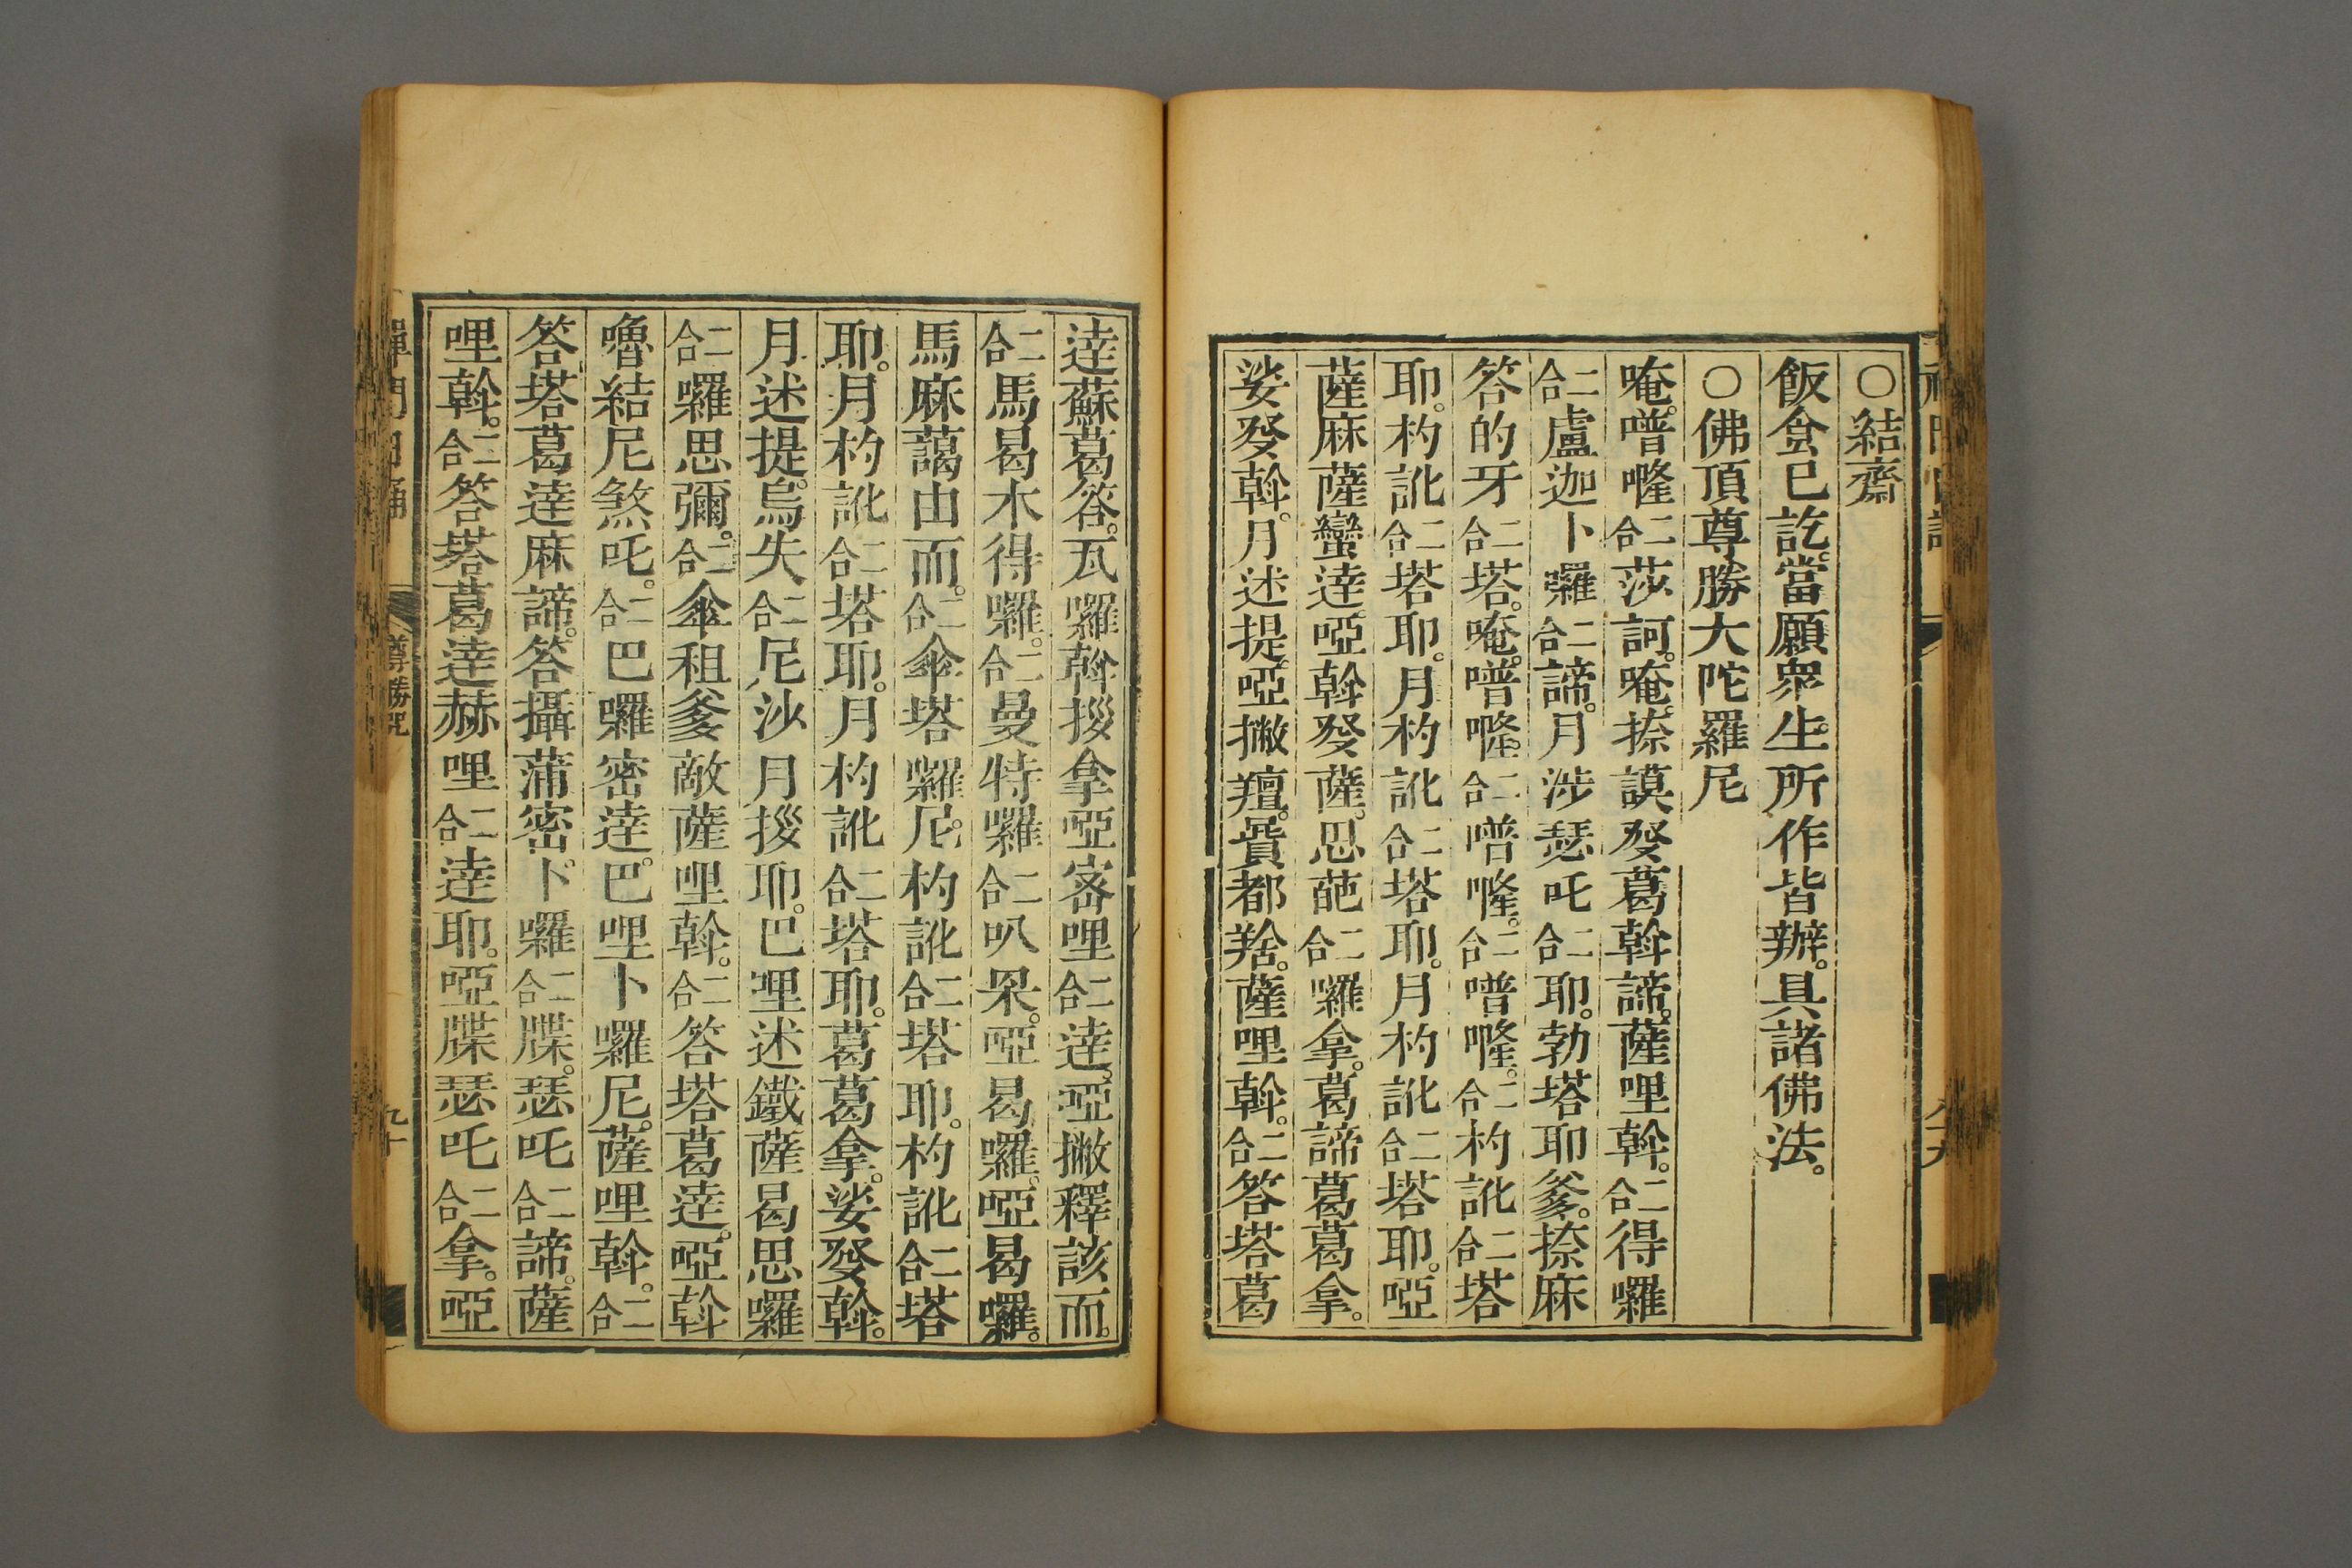 ○結齋
飯食已訖。當願眾生。所作皆辦。具諸佛法。
○佛頂尊勝大陀羅尼
唵。噌㘕二合莎訶。唵。捺謨癹葛斡諦。薩哩斡。二合得囉
二合盧迦卜囉二合諦。月涉瑟吒二合耶。勃塔耶爹。捺麻
答的牙二合塔。唵。噌㘕。二合噌㘕。二合噌㘕。二合杓訛二合塔
耶。杓訛二合塔耶。月杓訛二合塔耶。月杓訛二合塔耶。啞
薩麻薩蠻達。啞斡癹薩。思葩二合囉拿。葛諦葛葛拿。
娑癹斡。月述提。啞撇羶。贊都羚。薩哩斡。二合答塔葛
達蘇葛答。瓦囉斡拶拿啞宻哩二合達。啞撇釋該而。
二合馬曷木得囉。二合曼特囉二合叭杲。啞曷囉。啞曷囉。
馬麻藹由而。二合傘塔囉尼。杓訛二合塔耶。杓訛二合塔
耶。月杓訛二合塔耶。月杓訛二合塔耶。葛葛拿。娑癹斡。
月述提。烏失二合尼沙月拶耶。巴哩述鐵薩曷思囉
二合囉思彌。二合傘租爹敵薩哩斡。二合答塔葛達。啞斡
嚕結尼煞吒。二合巴囉密達。巴哩卜囉尼。薩哩斡。二合
答塔葛達麻諦。答攝蒲密。卜囉二合牒。瑟吒二合諦。薩
哩斡。二合答塔葛達赫哩二合達耶。啞牒瑟吒二合拿。啞
尊勝咒
九十